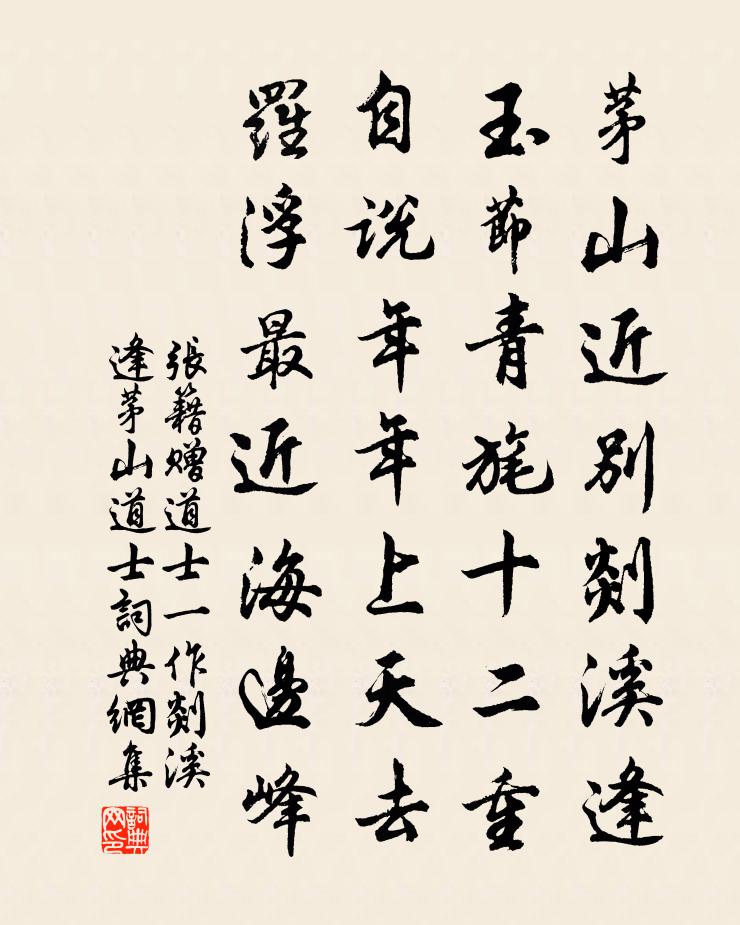 茅山近別剡溪逢
玉節青旄十二重
自說年年上天去
羅浮最近海邊峰
張籍贈道士一作剡溪
逢茅山道士詞典網集
詞典网印